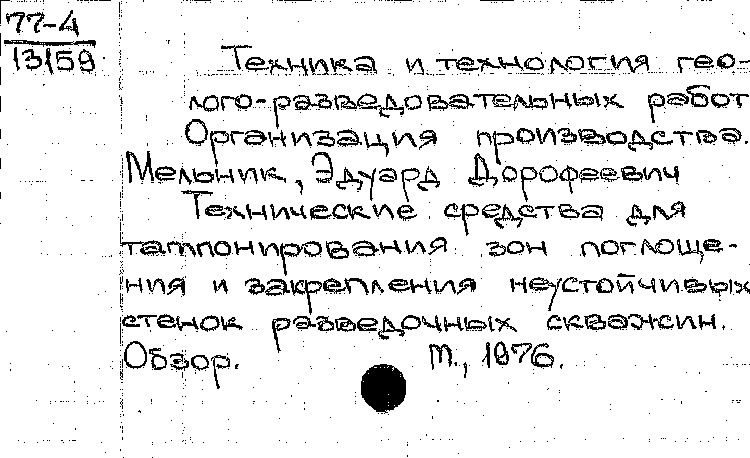 77-4
13159
Техника и технология гео-
лого-разведовательных работ
Организация производства.
Мельник, Эдуард Дорофеевич
Технические средства для
тампонирования зон поглоще-
ния и закрепления неустойчивых
стенок разведочных скважин.
Обзор. М., 1976.